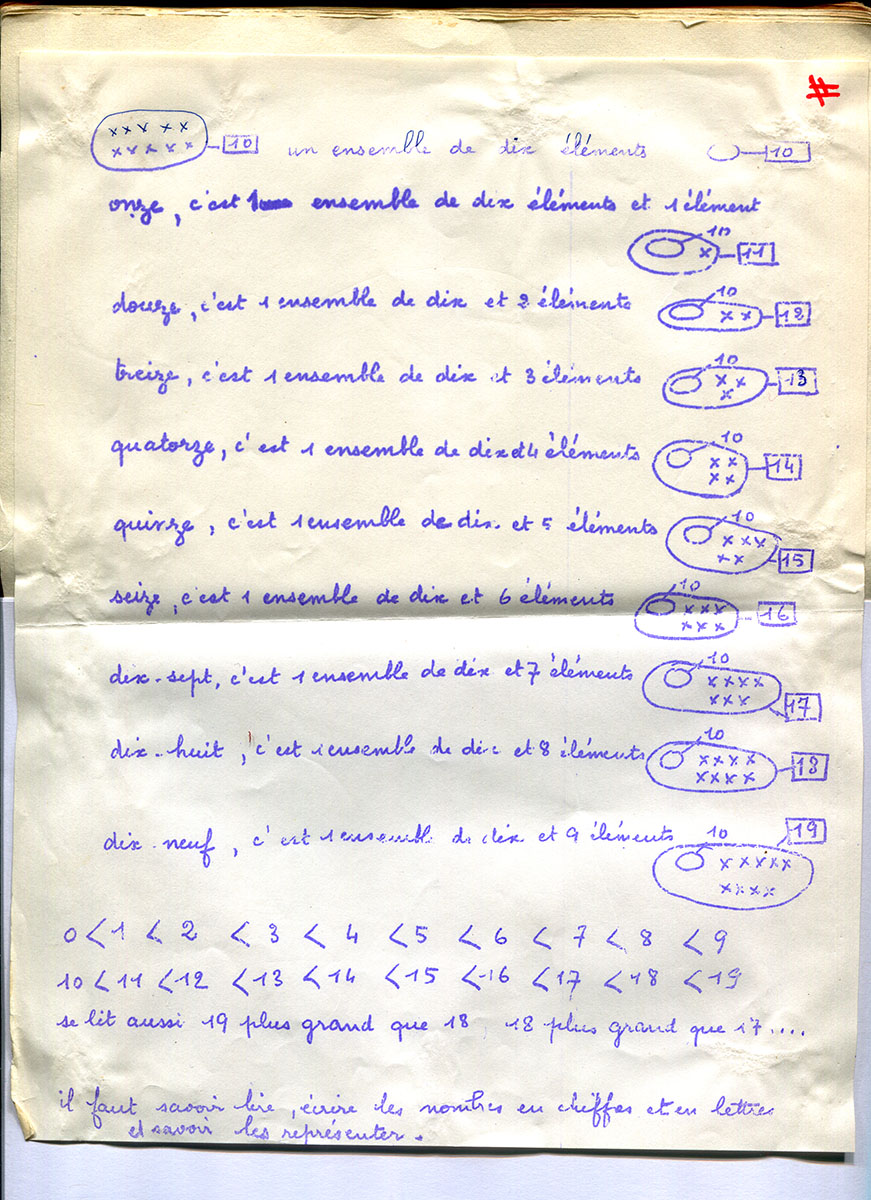 #
10 un ensemble de dix éléments 10
onze, c'est 1 ensemble de dix éléments et 1 élément
10
11
douze, c'est 1 ensemble de dix et 2 éléments 10 12
treize, c'est 1 ensemble de dix et 3 éléments 10 13
quatorze, c'est 1 ensemble de dix et 4 éléments 10 14
quinze, c'est 1 ensemble de dix et 5 éléments 10 15
seize, c'est 1 ensemble de dix et 6 éléments 10 16
dix-sept, c'est 1 ensemble de dix et 7 éléments 10 17
dix-huit, c'est 1 ensemble de dix et 8 éléments 10 18
dix-neuf, c'est 1 ensemble de dix et 9 éléments 10 19
0 < 1 < 2 < 3 < 4 < 5 < 6 < 7 < 8 < 9
10 < 11 < 12 < 13 < 14 < 15 < 16 < 17 < 18 < 19
se lit aussi 19 plus grand que 18 18 plus grand que 17....
il faut savoir lire, écrire les nombres en chiffres et en lettres
et savoir les représenter.